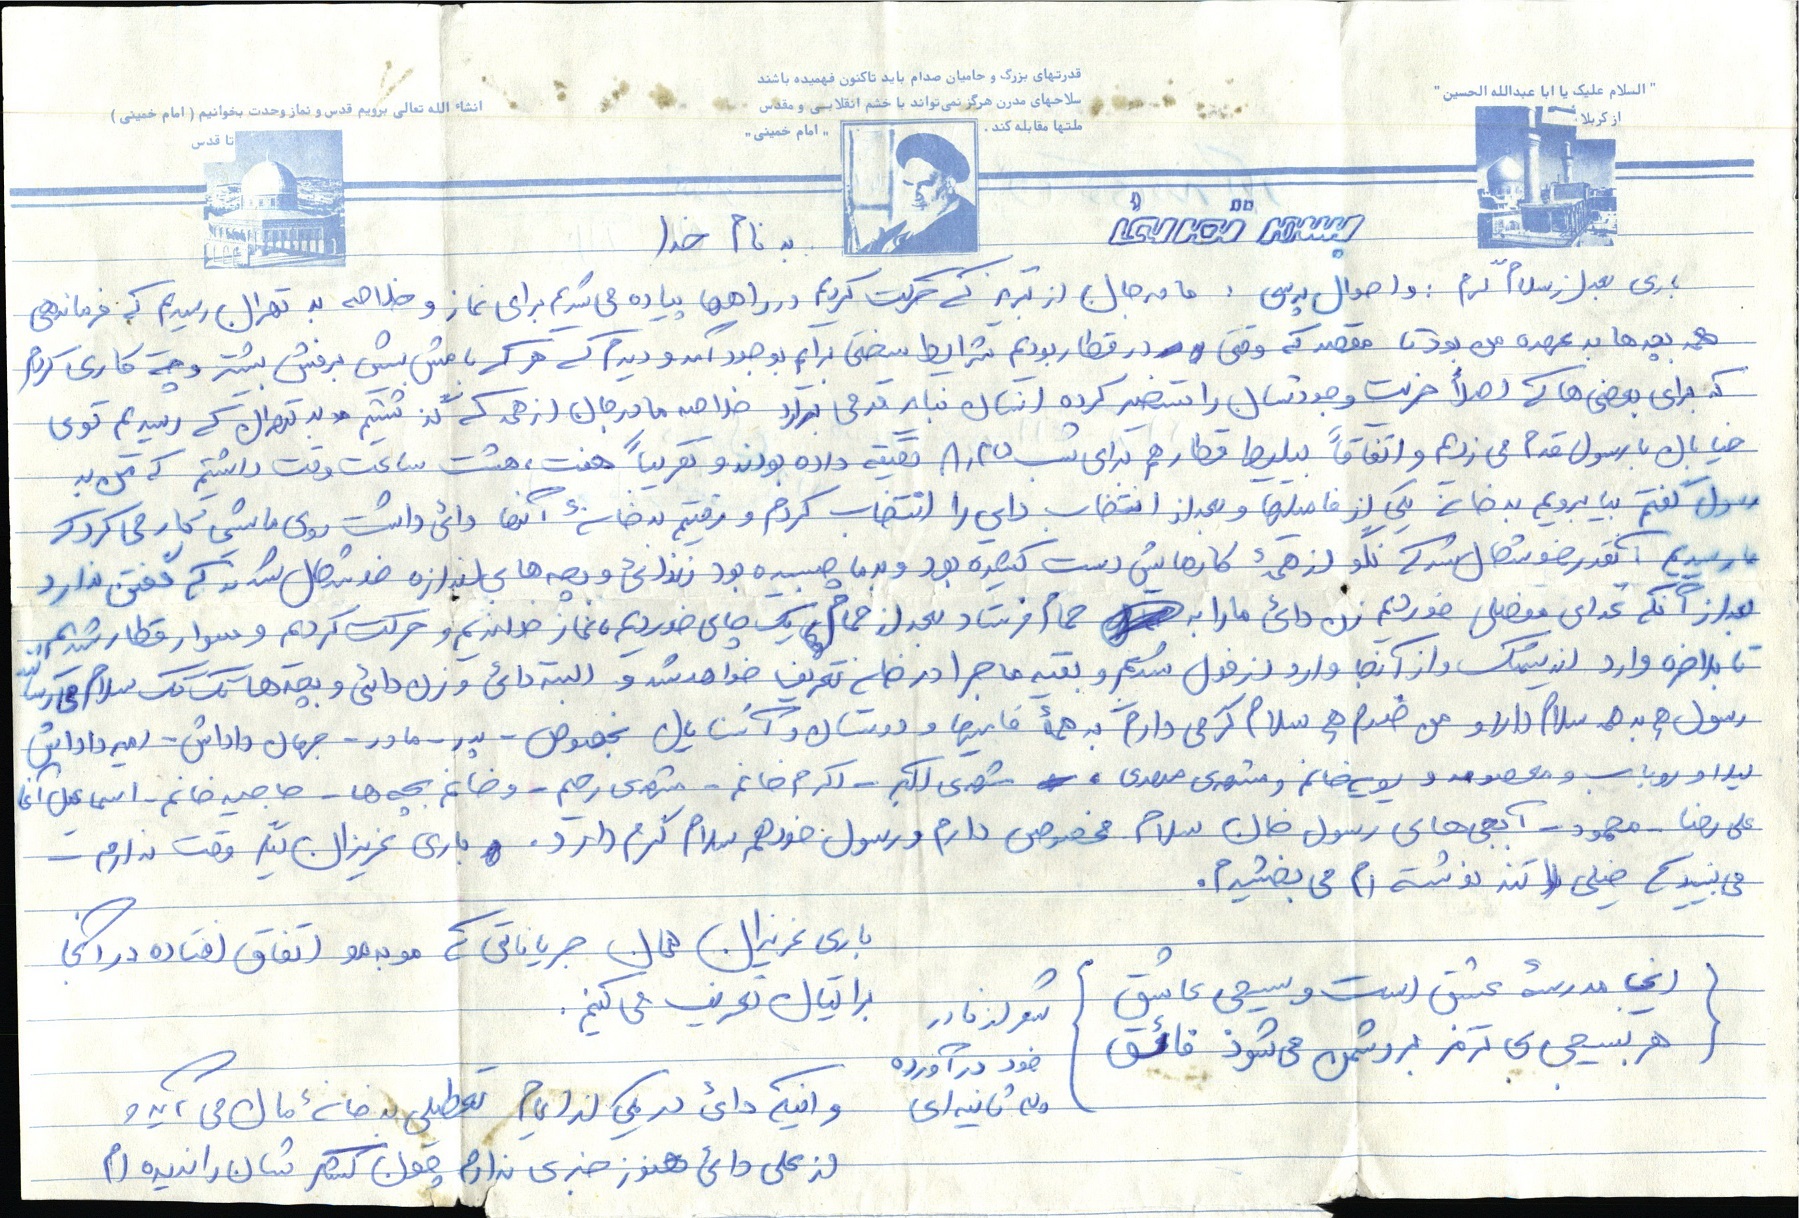 قدرتهای بزرگ و حامیان صدام باید تاکنون فهمیده باشند
سلاحهای مدرن هرگز نمی‌تواند با خشم انقلابی و مقدس
ملتها مقابله کند. "امام خمینی"
"السلام علیک یا ابا عبدالله الحسین"
از کربلا
انشاء الله تعالی برویم قدس و نماز وحدت بخوانیم (امام خمینی)
تا قدس
بسمه تعالی
به نام خدا
باری بعد از سلام گرم و احوال پرسی، مادرجان از تبریز که حرکت کردیم در راهها پیاده می‌شدیم برای نماز و خلاصه به تهران رسیدیم که فرماندهی
همه بچه‌ها به عهده من بود تا مقصد که وقتی در قطار بودیم شرایط سختی برایم بوجود آمد و دیدم که هر که بامش بیش برفش بیشتر و چه کاری کردم
که برای بعضی‌ها که اصلاً حزبیت وجودشان را تسخیر کرده خلاصه مادرجان از همه که گذشتیم به تهران که رسیدیم توی
خیابان با رسول قدم می‌زدیم و اتفاقاً بیلیط قطار هم برای شب دقیقه داده بودند و تقریباً هفت، هشت ساعت وقت داشتیم که من به
رسول گفتم بیا برویم به خانه یکی از فامیلها و بعد از انتخاب دایی را انتخاب کردم و رفتیم به خانهٔ آنها دائی داشت روی ماشین کار می‌کرد که
ما رسیدیم آنقدر خوشحال شد که نگو از همهٔ کارهایش دست کشیده بود و به ما چسبیده بود زندائی و بچه‌های بی‌اندازه خوشحال شدند که گفتن ندارد
بعد از آنکه غذای مفصلی خوردیم زن دائی ما را به حمام فرستاد بعد از حمام یک چای خوردیم نماز خواندیم و حرکت کردیم و سوار قطار شدیم
تا بلاخره وارد اندیمشک و از آنجا وارد دزفول شدیم و بقیه ماجرا در خانه تعریف خواهد شد و البته دائی و زن دائی و بچه‌ها تک تک سلام می‌رسانند
رسول هم به همه سلام دارد و من خودم هم سلام گرمی دارم به همهٔ فامیلها و دوستان و آشنایان بخصوص - پدر - مادر - جهان داداش - امیر داداش
لیلا و روباب و معصومه و خانم و مشهدی مهدی، مشهدی اکبر - اکرم خانم - مشهدی رحیم - و خانم بچه‌ها - حاجیه خانم - اسماعیل آقا
علی رضا - محمود - آبجی‌های رسول خان سلام مخصوصی دارم و رسول خود هم سلام گرم دارد. باری عزیزان دیگر وقت ندارم -
می‌بینید که خیلی تند نوشته ام می بخشیدم.
باری عزیزان همان جریاناتی که مو به مو اتفاق افتاده در آنجا
براتیان تعریف می‌کنیم.
اینجا مدرسهٔ عشق است و بسیجی عاشق
هر بسیجی بی ترمز بر دشمن می‌شود فائق
شعر از مادر
خود درآورده
ده ثانیه‌ای
و اینکه دائی در یکی از ایام تعطیلی به خانهٔ مان می‌آید و
از علی دائی هنوز خبری ندارم چون لشکر شان را ندیده ام